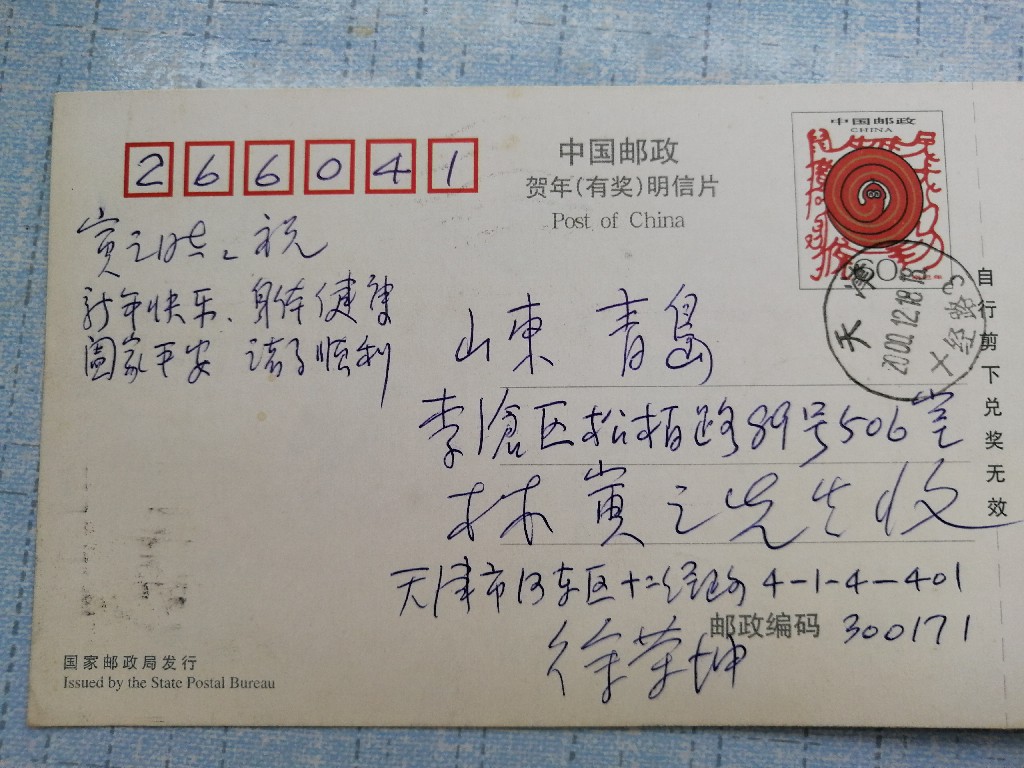 266041
中国邮政
贺年(有奖)明信片
Post of China
中国邮政
CHINA
60
天津
2000.12.18.18
自行剪下兑奖无效
寅之 祝
新年快乐、身体健康
阖家平安 诸事顺利
山東 青島
李滄区松柏路89号506室
林寅之先生收
天津市河东区十二经路4-1-4-401
邮政编码 300171
徐荣坤
国家邮政局发行
Issued by the State Postal Bureau